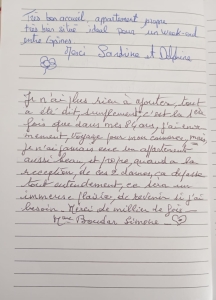 Très bon accueil, appartement propre
très bien situé idéal pour un week-end
entre copines
Merci Sandrine et Delphine
Je n'ai plus rien à ajouter, tout
a été dit, simplement c'est la 1ère
fois que dans mes 84 ans, j'ai
voyagé pour mon mais
je n'ai jamais un appartement
aussi beau et propre, quand a la
reception de ces 2 dames, ca dépasse
tout entendement, ce sera un
immense plaisir de revenir si j'ai
besoin. Merci de millier de fois
Mme Simone